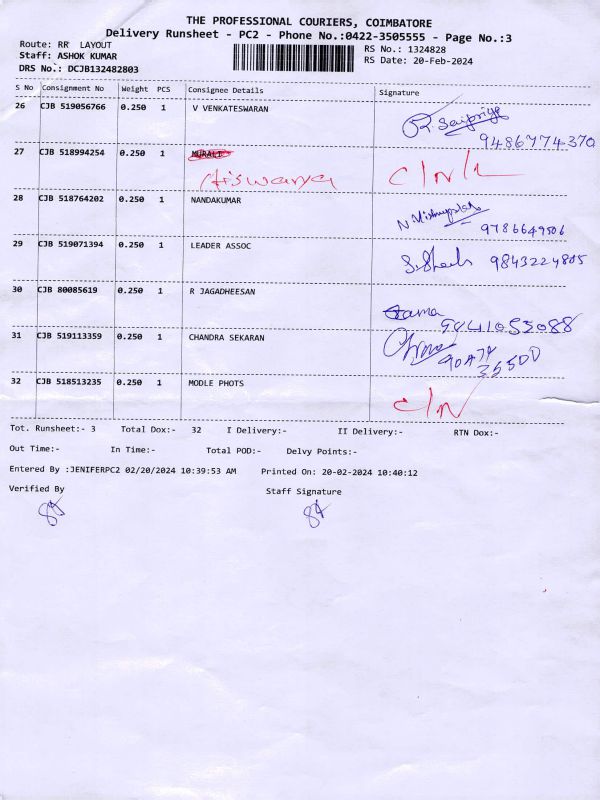 THE PROFESSIONAL COURIERS, COIMBATORE
Delivery Runsheet - PC2 - Phone No.:0422-3505555 - Page No.:3
Route: RR LAYOUT RS No.: 1324828
Staff: ASHOK KUMAR RS Date: 20-Feb-2024
DRS No.: DCJB132482803
S No Consignment No Weight PCS Consignee Details Signature
26 CJB 519056766 0.250 1 V VENKATESWARAN
9486774370
27 CJB 518994254 0.250 1 MURALI
Aiswarya
28 CJB 518764202 0.250 1 NANDAKUMAR
9786649506
29 CJB 519071394 0.250 1 LEADER ASSOC
9843224805
30 CJB 80085619 0.250 1 R JAGADHEESAN
31 CJB 519113359 0.250 1 CHANDRA SEKARAN
32 CJB 518513235 0.250 1 MODLE PHOTS
C/N
Tot. Runsheet:- 3 Total Dox:- 32 I Delivery:- II Delivery:- RTN Dox:-
Out Time:- In Time:- Total POD:- Delvy Points:-
Entered By :JENIFERPC2 02/20/2024 10:39:53 AM Printed On: 20-02-2024 10:40:12
Verified By Staff Signature